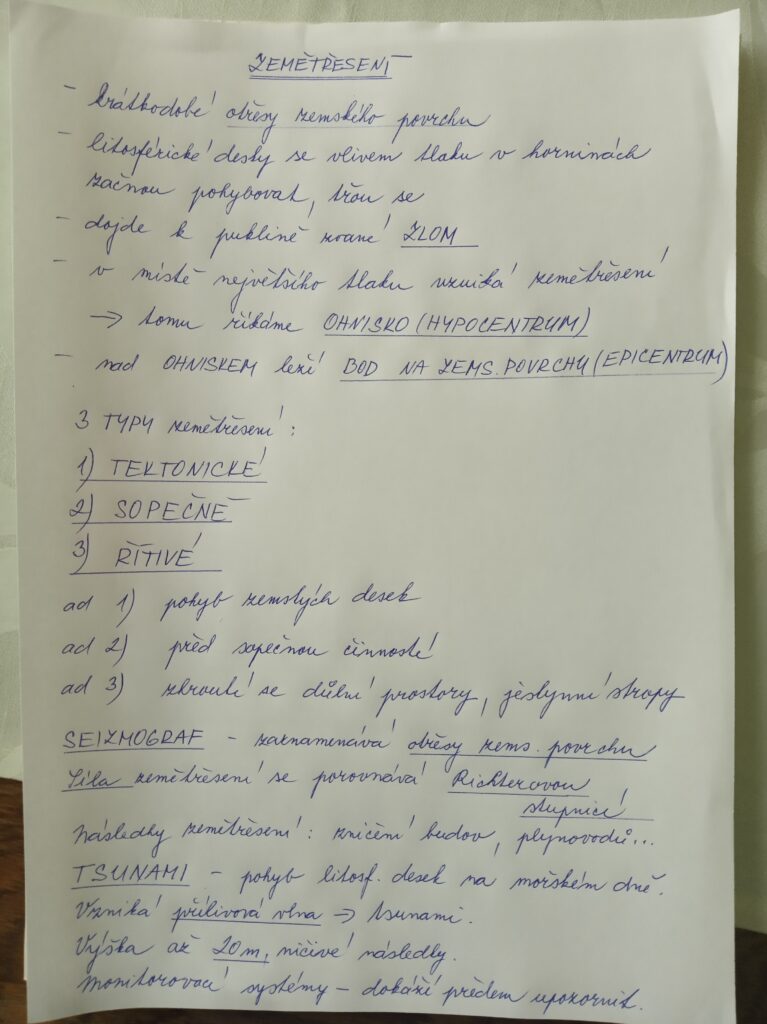 ZEMĚTŘESENÍ
- krátkodobé otřesy zemského povrchu
- litosférické desky se vlivem tlaku v horninách
začnou pohybovat, třou se
- dojde k puklině zvané ZLOM
- v místě největšího tlaku vzniká zemětřesení
→ tomu říkáme OHNISKO (HYPOCENTRUM)
- nad OHNISKEM leží BOD NA ZEMS. POVRCHU (EPICENTRUM)
3 TYPY zemětřesení:
1) TEKTONICKÉ
2) SOPEČNÉ
3) ŘÍTIVÉ
ad 1) pohyb zemských desek
ad 2) před sopečnou činností
ad 3) zhroutí se důlní prostory, jeskynní stropy
SEIZMOGRAF - zaznamenává otřesy zems. povrchu
Síla zemětřesení se porovnává Richterovou
stupnicí
Následky zemětřesení: zničení budov, plynovodů...
TSUNAMI - pohyb litosf. desek na mořském dně.
Vzniká přílivová vlna → tsunami.
Výška až 20m, ničivé následky.
Monitorovací systémy - dokáží předem upozornit.